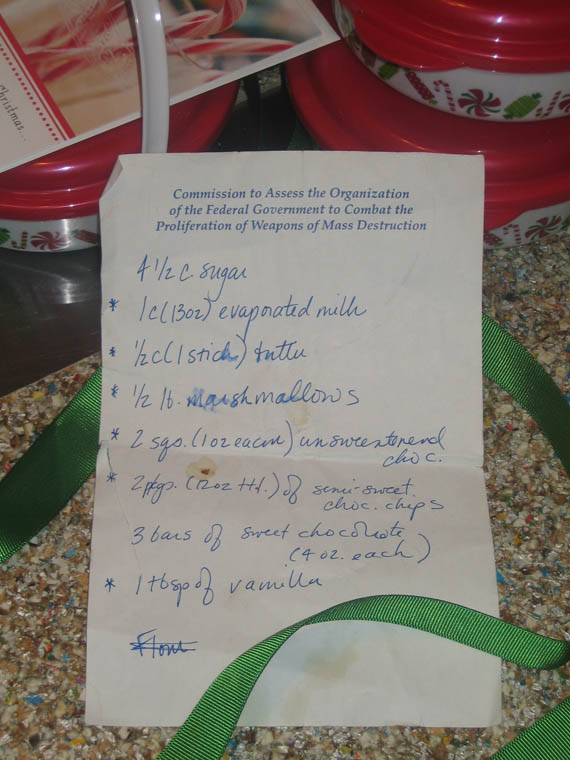 Christmas...
Commission to Assess the Organization
of the Federal Government to Combat the
Proliferation of Weapons of Mass Destruction
4 1/2 c. sugar
* 1c (13oz) evaporated milk
* 1/2 c (1 stick) butter
* 1/2 lb. marshmallows
* 2 sqs. (1 oz each) unsweetened
choc.
* 2 pkgs. (12oz ttl.) of semi-sweet
choc. chips
3 bars of sweet chocolate
(4 oz. each)
* 1 tbsp of vanilla
Flour